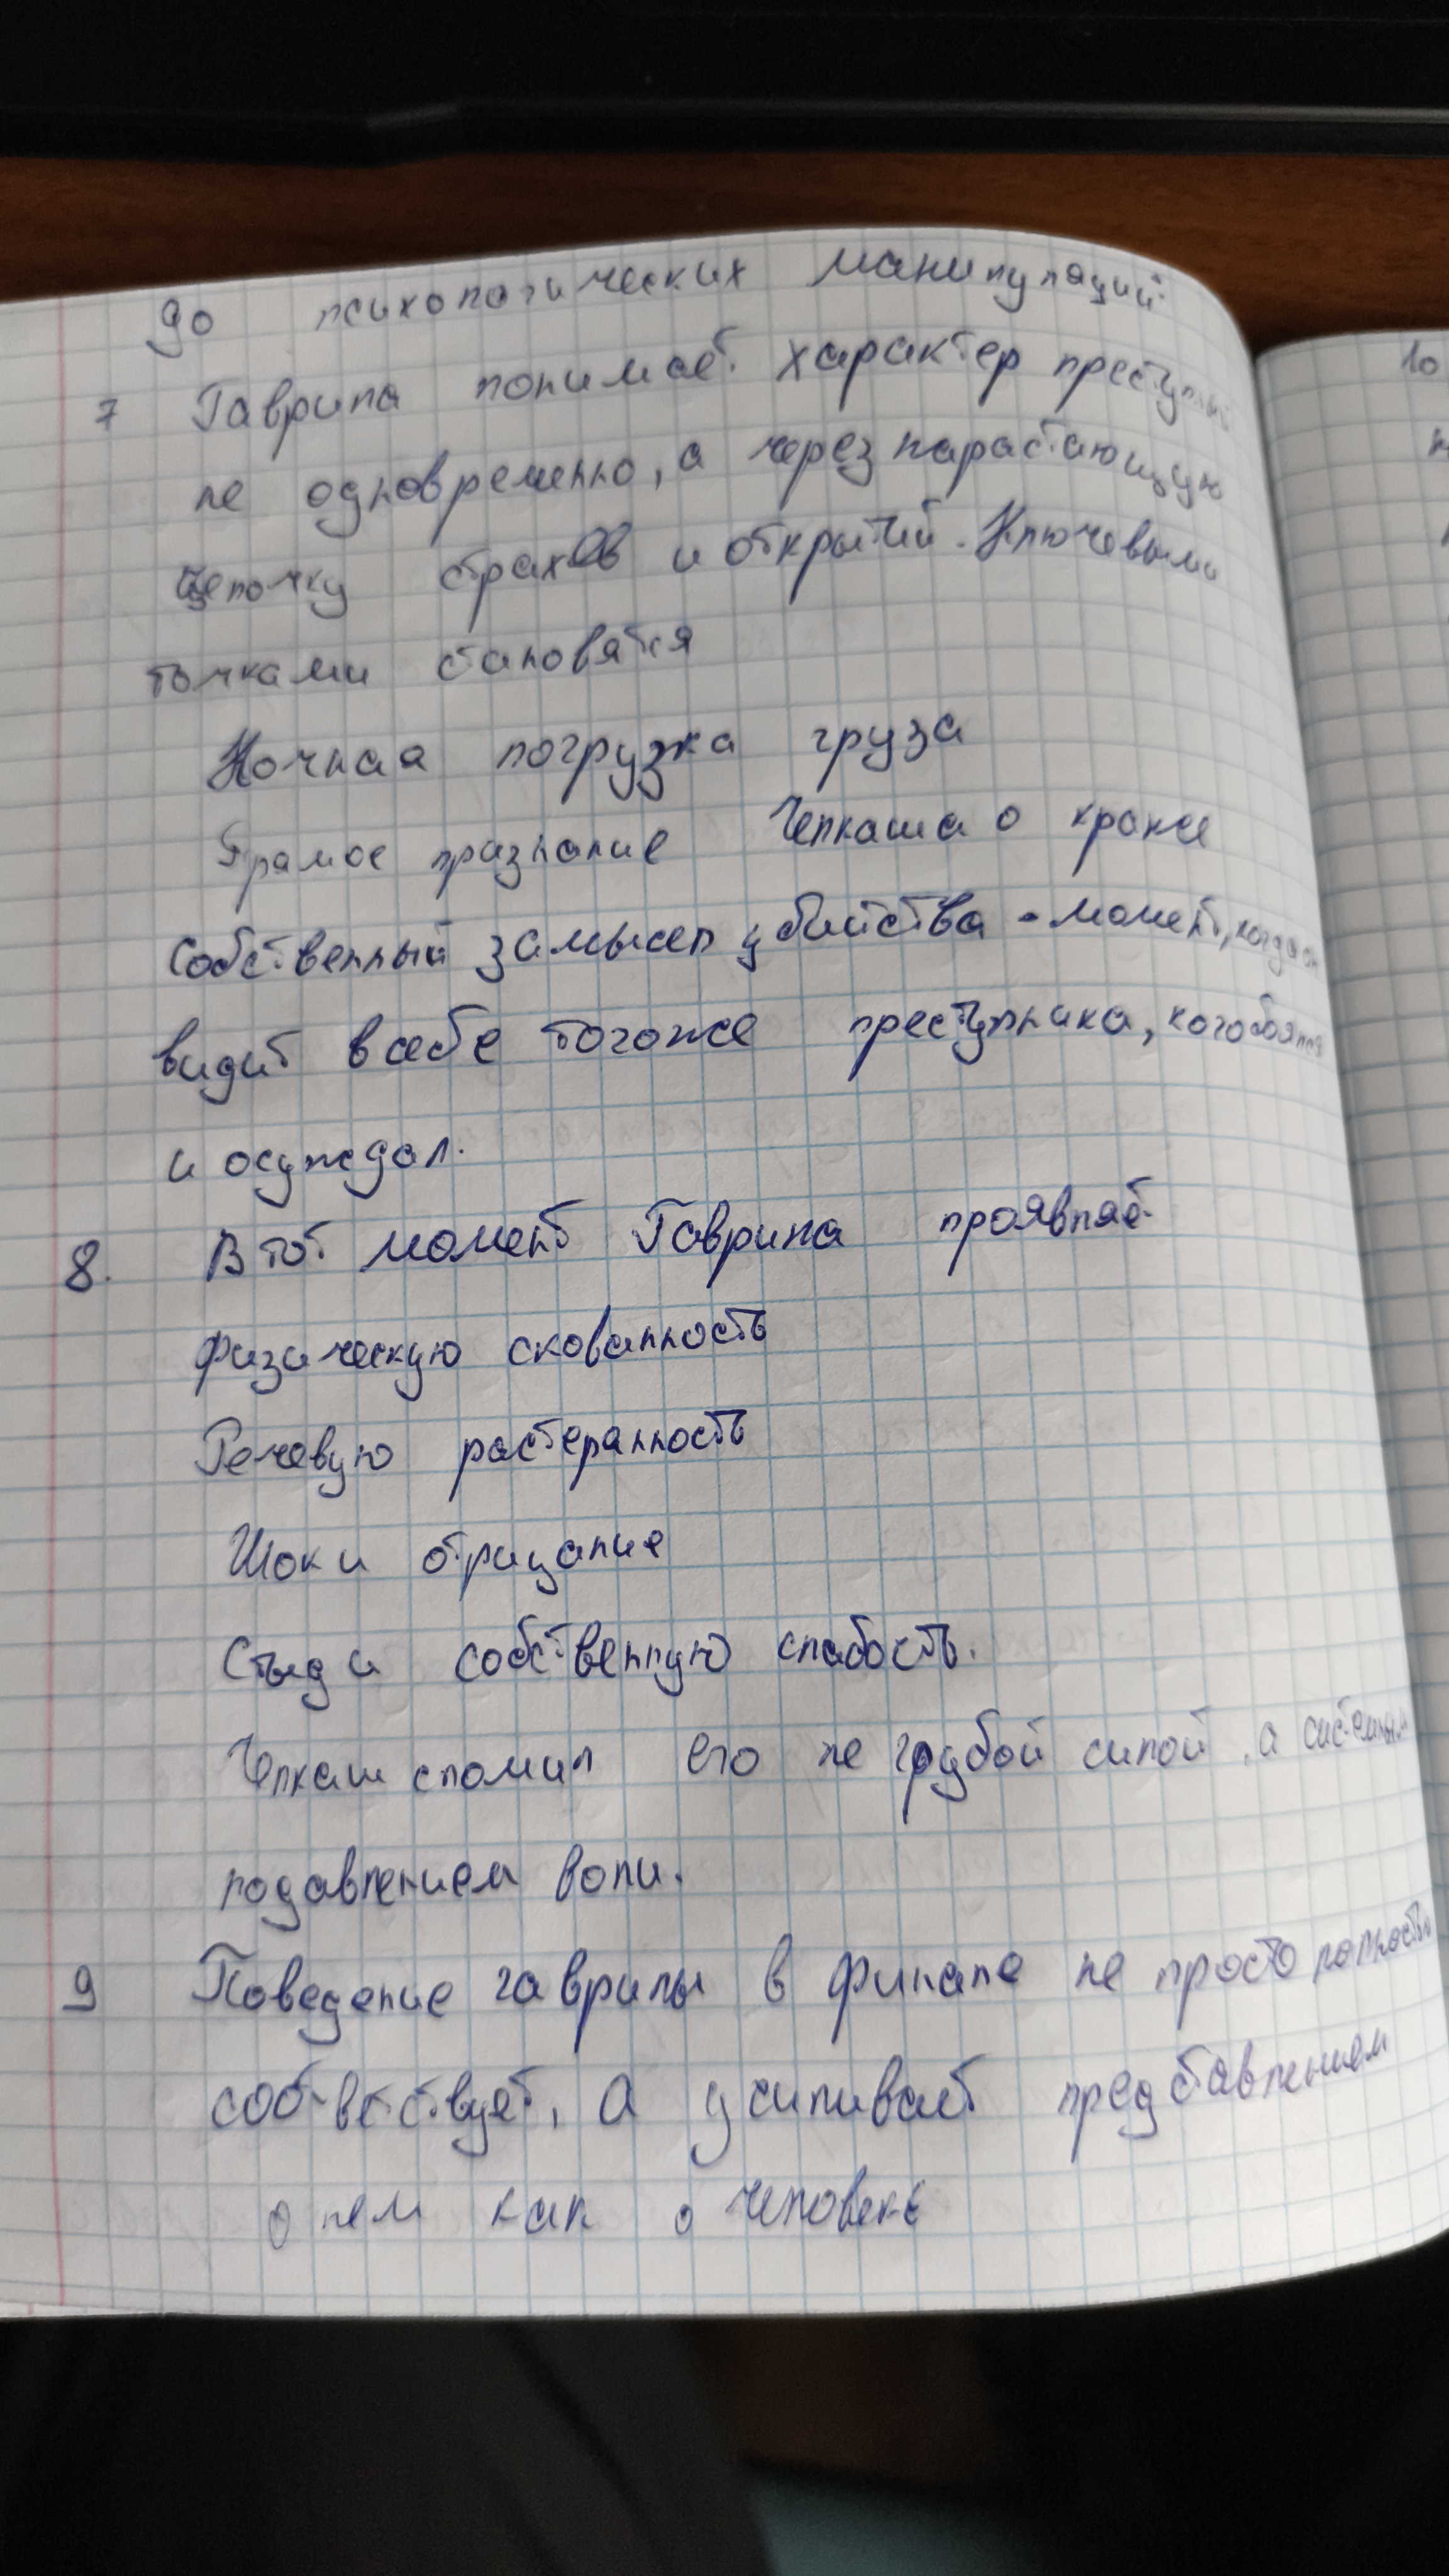 до психологических манипуляций
7 Гаврила понимает характер преступных
не одновременно, а через нарастающую
цепочку страхов и открытий. Ключевыми
точками становятся
Ночная погрузка груза
Прямое признание Челкаша о краже
Собственный замысел убийства - момент, когда он
видит в себе тогоже преступника, кого боялся
и осуждал.
8. В тот момент Гаврила проявляет
физическую скованность
Речевую растерянность
Шок и отрицание
Стыд и собственную слабость.
Челкаш сломил его не грубой силой, а системным
подавлением воли.
9 Поведение гаврилы в финале не просто полностью
соответствует, а усиливает представлением
о нем как о человеке
10